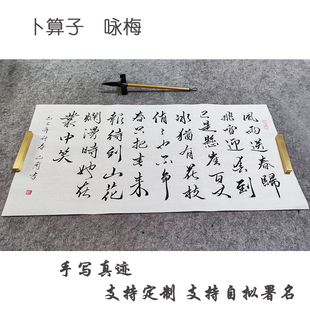 卜算子 咏梅
風雨送春歸
飛雪迎春到
已是懸崖百丈
冰猶有花枝
俏俏也不爭
春只把春來
報待到山花
爛漫時她在
叢中笑
手写真迹
支持定制 支持自拟署名